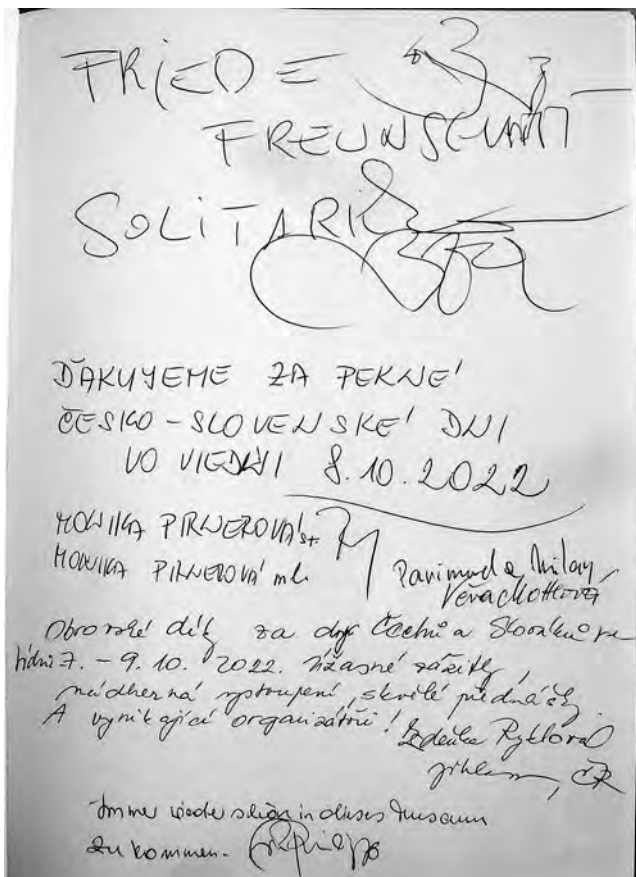 FRiEDE
FREUNSCHAFT
SOLiTARi
ĎAKUJEME ZA PEKNÉ
ČESKO-SLOVENSKÉ DNI
VO VIEDNI 8.10.2022
MONIKA PIRNEROVÁ st.
MONIKA PIRNEROVÁ ml.
Milan
Věra
Obrovské dík za dny Čechů a Slováků ve
Vídni 7. – 9. 10. 2022. Úžasné zážitky,
nádherná vystoupení, skvělé přednášky.
A vynikající organizátoři! Zdeňka Ryklová
Jihlava, ČR
Immer wieder schön in dieses Museum
zu kommen.